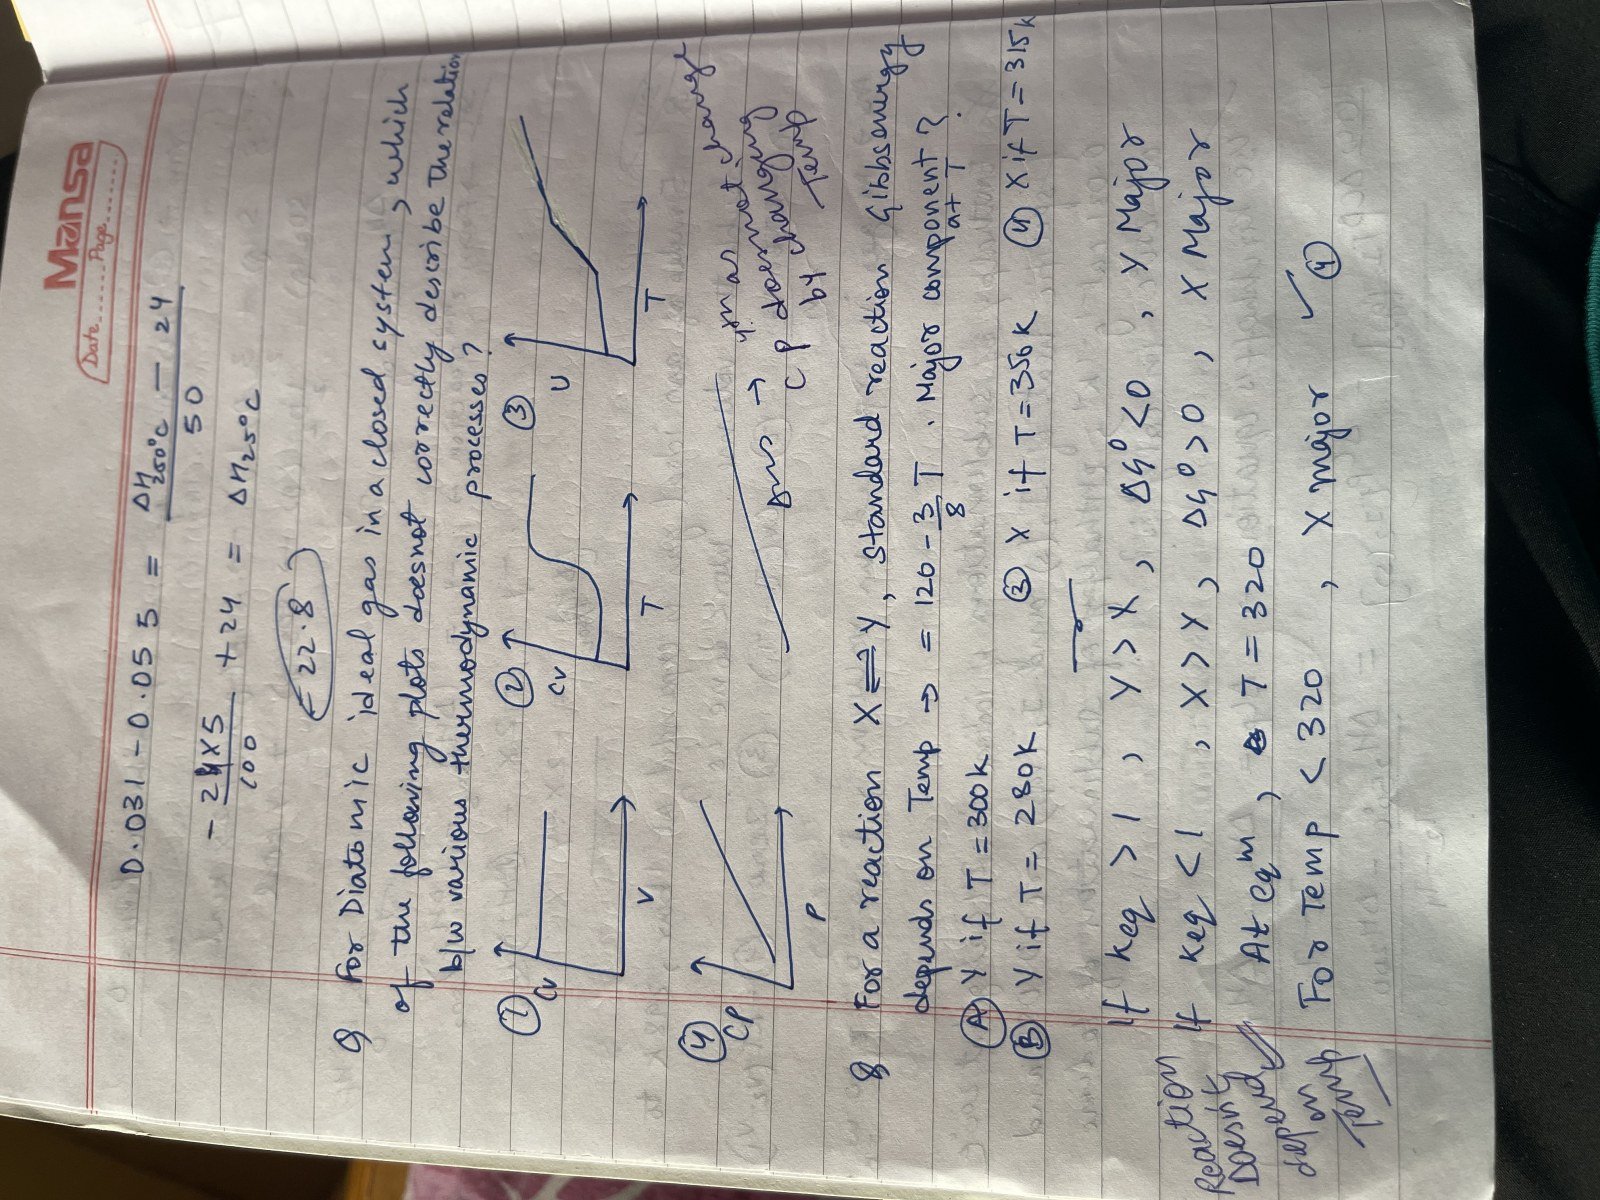 Mansa
Date.......Page........
0.031 - 0.055 = ΔH250°C - 24
50
- 24×5 + 24 = ΔH250°C
100
= 22.8
Q For Diatomic ideal gas in a closed system, which
of the following plots doesnot correctly describe the relation
b/w various thermodynamic processes?
① Cv V
② Cv T
③ U T
④ CP P
Ans → as not change
CP doesn changing
by changing Temp
Q For a reaction X ⇌ Y, Standard reaction Gibbs energy
depends on Temp → = 120 - 3/8 T. Major component at T?
Ⓐ Y if T = 300K ③ X if T = 350K ④ X if T = 315K
Ⓑ Y if T = 280K
If Keq > 1, Y > X, ΔG° < 0, Y Major
If Keq < 1, X > Y, ΔG° > 0, X Major
At eqm, T = 320
For Temp < 320, X major ✓ ④
Reaction
Doesn't
depend
on
Temp